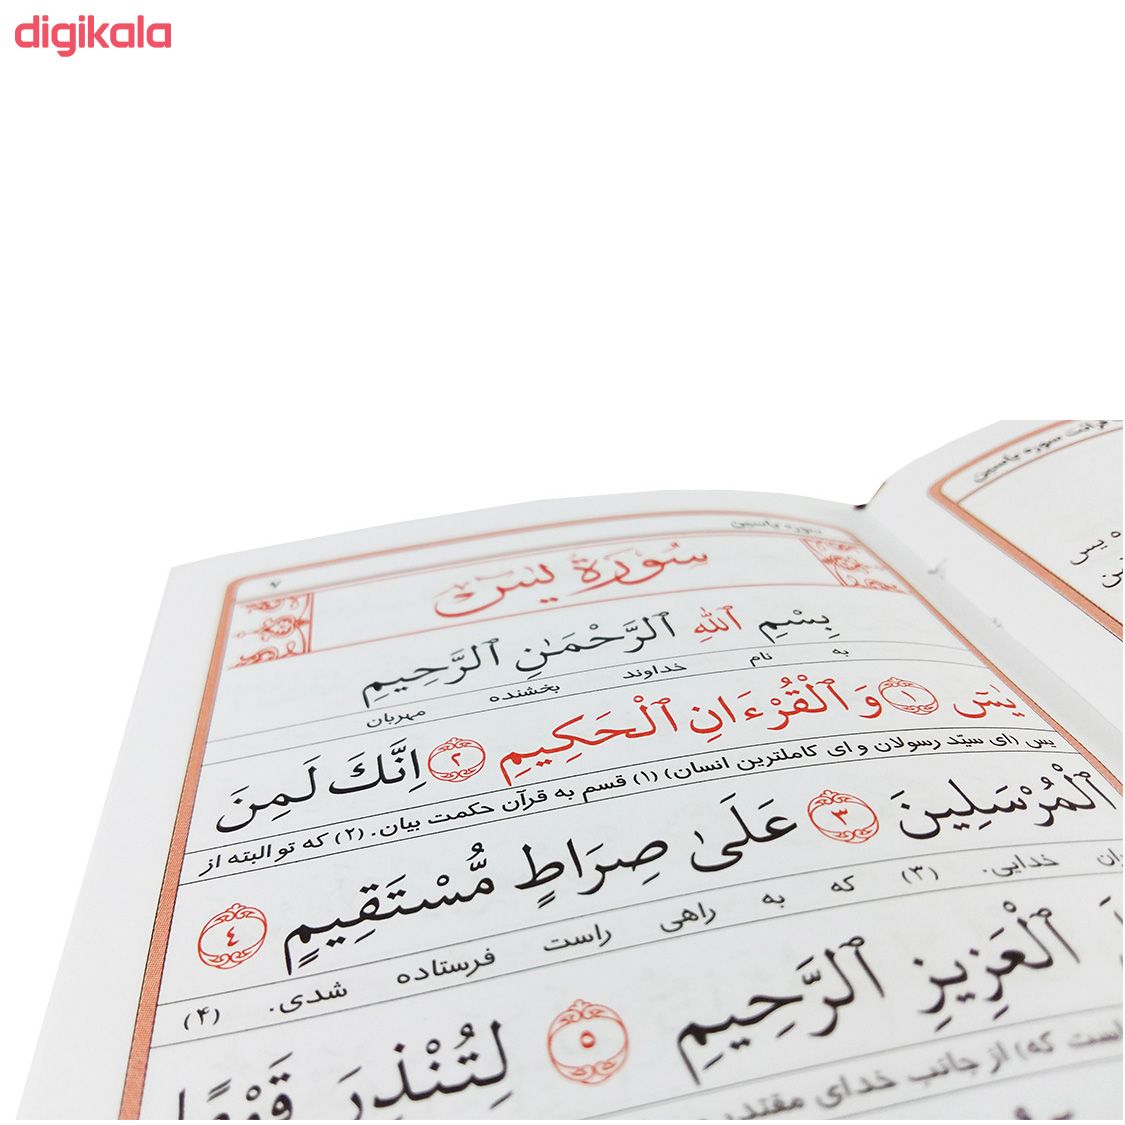 digikala
قرائت سوره یاسین
سوره یاسین
۷
سُورَةُ يسۤ
بِسْمِ ٱللهِ ٱلرَّحْمَـٰنِ ٱلرَّحِيمِ
به نام خداوند بخشنده مهربان
يٰسۤ ١ وَ ٱلْقُرْءَانِ ٱلْحَكِيمِ ٢ اِنَّكَ لَمِنَ
یس (ای سیّد رسولان و ای کاملترین انسان) (۱) قسم به قرآن حکمت بیان. (۲) که تو البته از
ٱلْمُرْسَلِينَ ٣ عَلَىٰ صِرَاطٍ مُّسْتَقِيمٍ ٤
خدایی. (۳) که به راهی راست فرستاده شدی. (۴)
ٱلْعَزِيزِ ٱلرَّحِيمِ ٥ لِتُنْذِرَ قَوْمًا
است که) از جانب خدای مقتدر